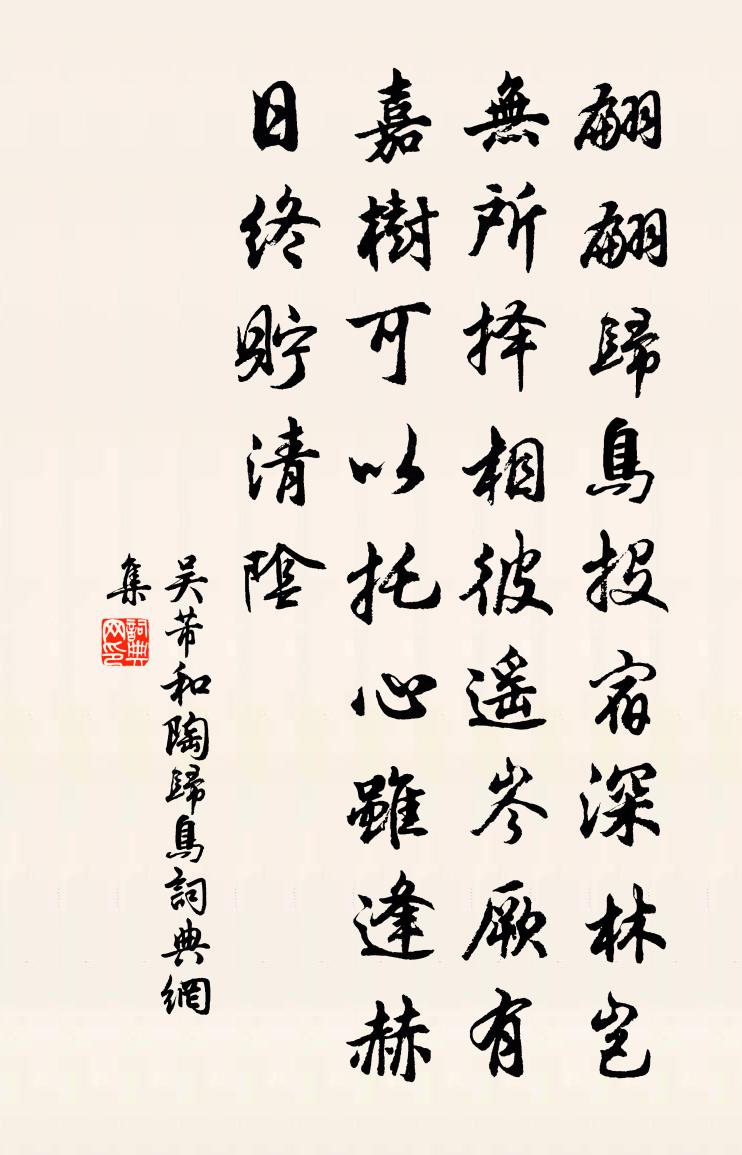 翩翩歸鳥投宿深林豈
無所择相彼遥岑厥有
嘉樹可以托心雖逢赫
日終貯清陰
吴芾和陶歸鳥詞典網
集
詞典网印